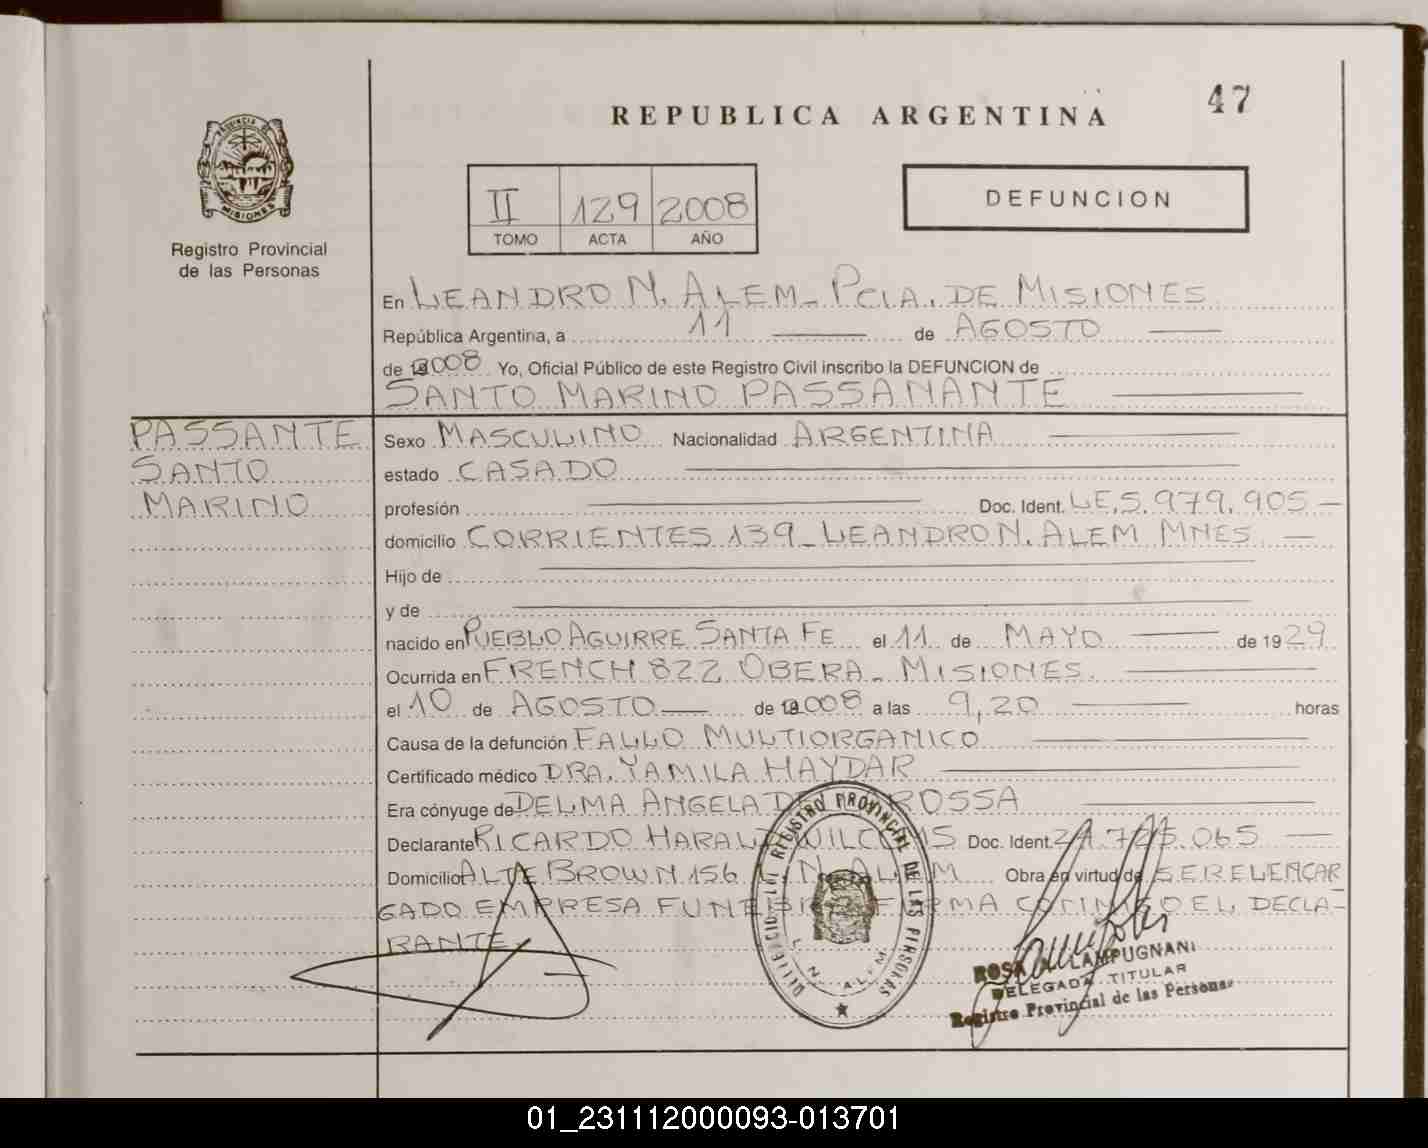 REPUBLICA ARGENTINA
47
PROVINCIA DE
MISIONES
Registro Provincial
de las Personas
II 129 2008
TOMO ACTA AÑO
DEFUNCION
En LEANDRO N. ALEM - PCIA. DE MISIONES
República Argentina, a 11 de AGOSTO
de 2008 Yo, Oficial Público de este Registro Civil inscribo la DEFUNCION de
SANTO MARINO PASSANANTE
PASSANTE
SANTO
MARINO
Sexo MASCULINO Nacionalidad ARGENTINA
estado CASADO
profesión Doc. Ident. LE. 5.979.905 -
domicilio CORRIENTES 139 - LEANDRO N. ALEM MNES
Hijo de
y de
nacido en PUEBLO AGUIRRE SANTA FE el 11 de MAYO de 1929
Ocurrida en FRENCH 822 OBERA - MISIONES.
el 10 de AGOSTO de 2008 a las 9,20 horas
Causa de la defunción FALLO MULTIORGANICO
Certificado médico DRA. YAMILA HAYDAR
Era cónyuge de DELMA ANGELA ROSSA
Declarante RICARDO HARALD Doc. Ident. 065
Domicilio ALTE BROWN 156 L. N. ALEM Obra en virtud de SER EL ENCAR
GADO EMPRESA FUNEBRE FIRMA CONMIGO EL DECLA-
RANTE
REGISTRO PROVINCIAL DE LAS PERSONAS
L. N. ALEM
ROSA LAMPUGNANI
DELEGADA TITULAR
Registro Provincial de las Personas
01_231112000093-013701